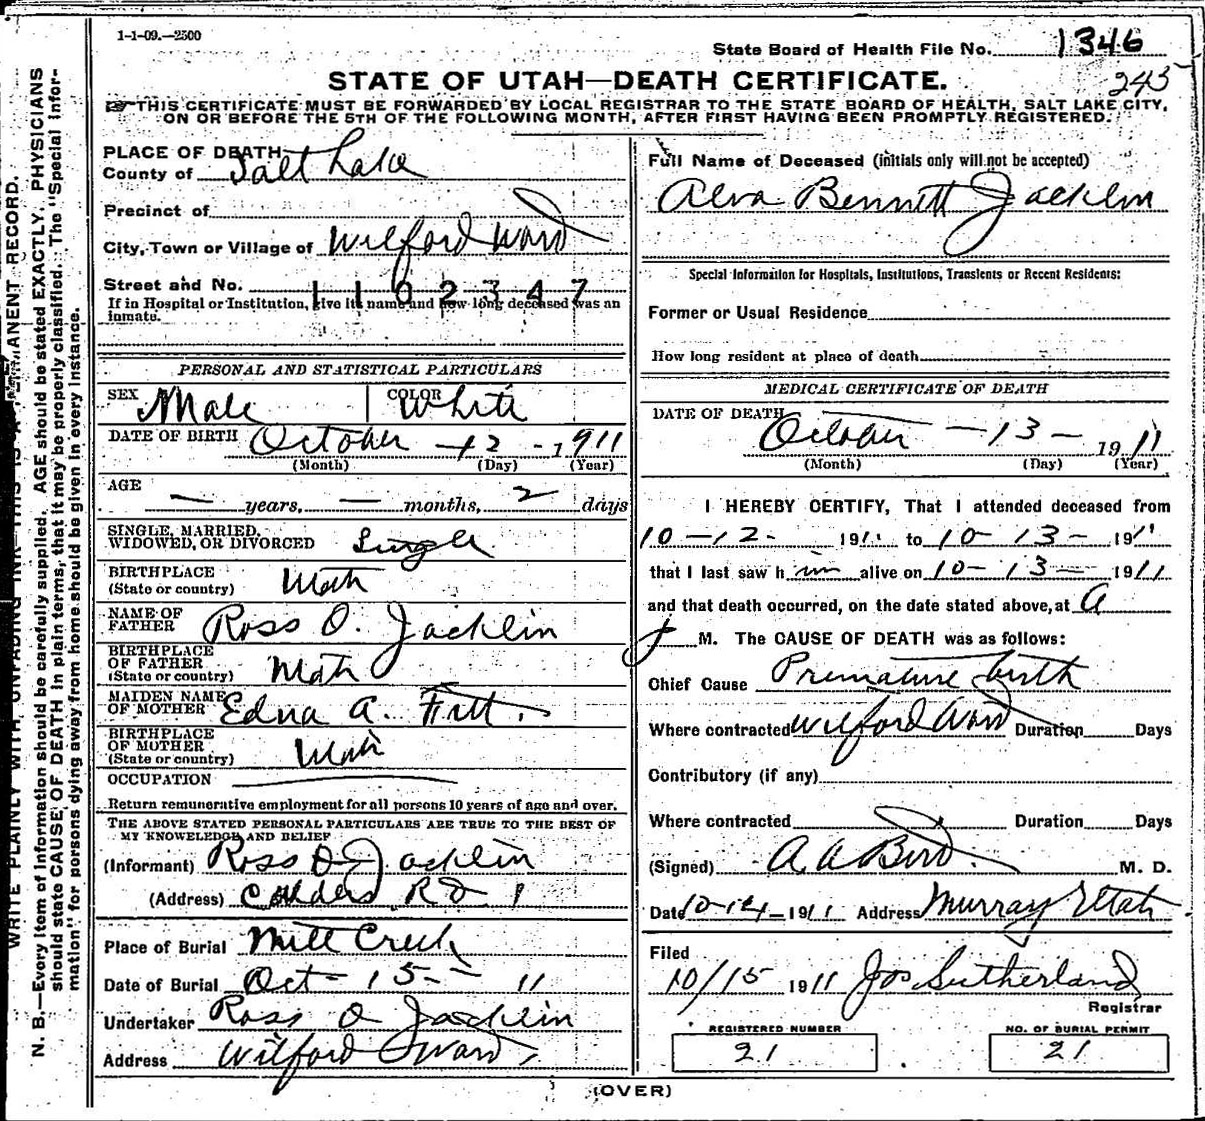 1-1-09.—2500
State Board of Health File No. 1346
245
STATE OF UTAH—DEATH CERTIFICATE.
THIS CERTIFICATE MUST BE FORWARDED BY LOCAL REGISTRAR TO THE STATE BOARD OF HEALTH, SALT LAKE CITY,
ON OR BEFORE THE 5TH OF THE FOLLOWING MONTH, AFTER FIRST HAVING BEEN PROMPTLY REGISTERED.
WRITE PLAINLY WITH UNFADING INK—THIS IS A PERMANENT RECORD.
N. B.—Every item of information should be carefully supplied. AGE should be stated EXACTLY. PHYSICIANS
should state CAUSE OF DEATH in plain terms, that it may be properly classified. The "Special Infor-
mation" for persons dying away from home should be given in every instance.
PLACE OF DEATH
County of Salt Lake
Precinct of
City, Town or Village of Wilford Ward
Street and No.
1102347
If in Hospital or Institution, give its name and how long deceased was an
inmate.
PERSONAL AND STATISTICAL PARTICULARS
SEX Male COLOR White
DATE OF BIRTH October - 12 - 1911
(Month) (Day) (Year)
AGE
— years, — months, 2 days
SINGLE, MARRIED,
WIDOWED, OR DIVORCED Single
BIRTHPLACE
(State or country) Utah
NAME OF
FATHER Ross O. Jacklin
BIRTHPLACE
OF FATHER
(State or country) Utah
MAIDEN NAME
OF MOTHER Edna A. Fitt.
BIRTHPLACE
OF MOTHER
(State or country) Utah
OCCUPATION
Return remunerative employment for all persons 10 years of age and over.
THE ABOVE STATED PERSONAL PARTICULARS ARE TRUE TO THE BEST OF
MY KNOWELEDGE AND BELIEF
(Informant) Ross O Jacklin
(Address) Calders R D 1
Place of Burial Mill Creek
Date of Burial Oct - 15 - 11
Undertaker Ross O Jacklin
Address Wilford Ward,
Full Name of Deceased (initials only will not be accepted)
Alva Bennett Jacklin
Special Information for Hospitals, Institutions, Transients or Recent Residents:
Former or Usual Residence
How long resident at place of death
MEDICAL CERTIFICATE OF DEATH
DATE OF DEATH October - 13 - 1911
(Month) (Day) (Year)
I HEREBY CERTIFY, That I attended deceased from
10-12- 1911 to 10-13- 1911
that I last saw him alive on 10-13- 1911
and that death occurred, on the date stated above, at A
M. The CAUSE OF DEATH was as follows:
Chief Cause Premature birth
Where contracted Wilford Ward Duration Days
Contributory (if any)
Where contracted Duration Days
(Signed) A. A. Bird. M. D.
Date 10-14-1911 Address Murray Utah
Filed
10/15 1911 Jos Sutherland
Registrar
REGISTERED NUMBER
21
NO. OF BURIAL PERMIT
21
(OVER)